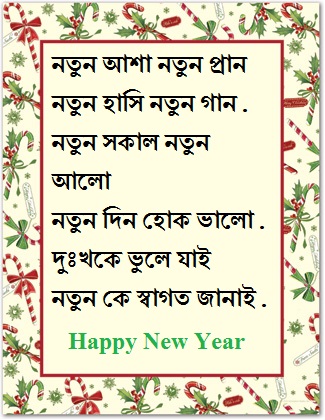 নতুন আশা নতুন প্রান
নতুন হাসি নতুন গান .
নতুন সকাল নতুন
আলো
নতুন দিন হোক ভালো .
দুঃখকে ভুলে যাই
নতুন কে স্বাগত জানাই .
Happy New Year